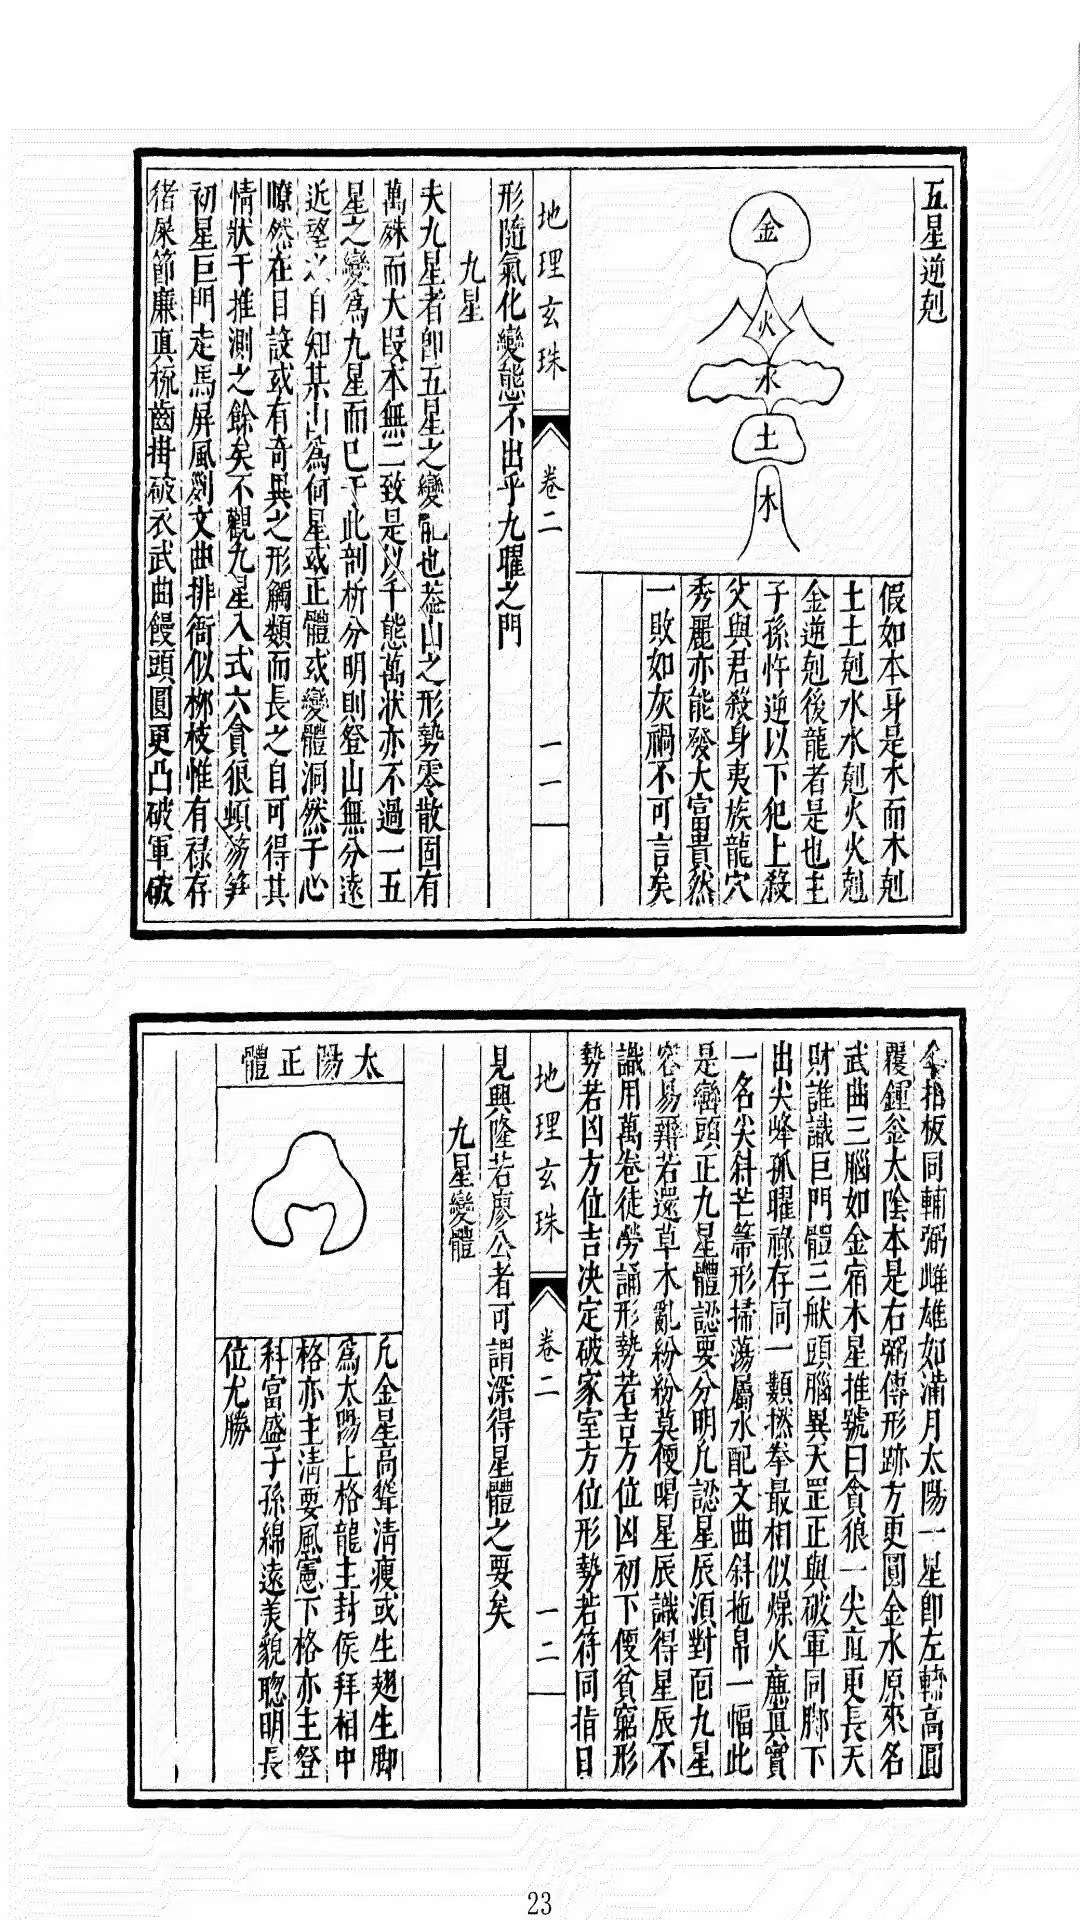 五星逆剋
金
火
水
土
木
假如本身是木而木剋
土土剋水水剋火火剋
金逆剋後龍者是也主
子孫忤逆以下犯上殺
父與君殺身夷族龍穴
秀麗亦能發大富貴然
一敗如灰禍不可言矣
地理玄珠
卷二
一一
形隨氣化變態不出乎九曜之門
九星
夫九星者即五星之變亂也葢山之形勢零散固有
萬殊而大段本無二致是以千態萬状亦不過一五
星之變爲九星而已于此剖析分明則登山無分遠
近望之自知某山爲何星或正體或變體洞然于心
瞭然在目設或有奇異之形觸類而長之自可得其
情狀于推測之餘矣不觀九星入式六貪狼頓笏笋
初星巨門走馬屏風劉文曲排衙似栁枝惟有禄存
猪屎節廉真梳齒掛破衣武曲饅頭圓更凸破軍破
傘拍板同輔弼雌雄如滿月太陽一星即左輔高圓
覆鍾釡太陰本是右弼傳形跡方更圓金水原來名
武曲三腦如金宿木星推號曰貪狼一尖直更長天
財誰識巨門體三般頭腦異天罡正與破軍同脚下
出尖峰孤曜祿存同一類撚拳最相似燥火廉真實
一名尖斜芒箒形掃蕩屬水配文曲斜拖帛一幅此
是巒頭正九星體認要分明凢認星辰須對面九星
容易辨若還草木亂紛紛莫便喝星辰識得星辰不
識用萬卷徒勞誦形勢若吉方位凶初下便貧窮形
勢若凶方位吉決定破家室方位形勢若符同指日
地理玄珠
卷二
一二
見興隆若廖公者可謂深得星體之要矣
九星變體
太陽正體
凢金星高聳清瘦或生翅生脚
爲太陽上格龍主封侯拜相中
格亦主清要風憲下格亦主登
科富盛子孫綿遠美貌聰明長
位尤勝
23